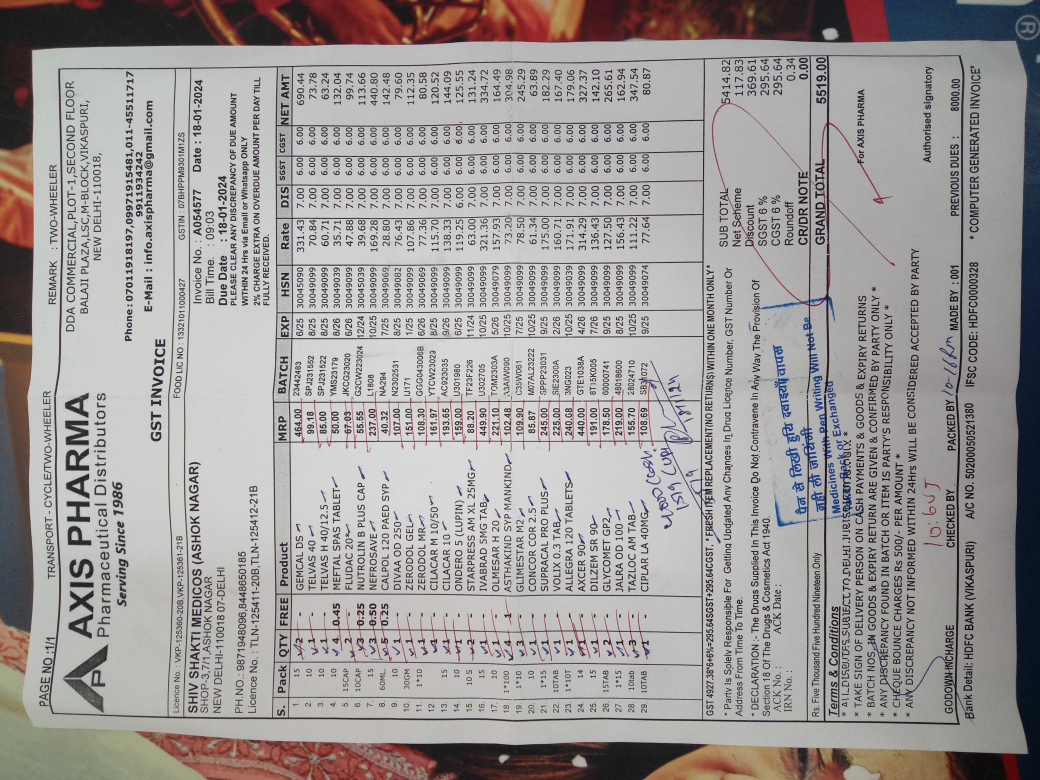 PAGE NO :1/1 TRANSPORT - CYCLE/TWO-WHEELER REMARK : TWO-WHEELER
AXIS PHARMA
Pharmaceutical Distributors
Serving Since 1986
DDA COMMERCIAL,PLOT-1,SECOND FLOOR
BALAJI PLAZA,LSC,M-BLOCK,VIKASPURI,
NEW DELHI-110018,
Phone:07011918197,09997915481,011-45511717
9911934242
E-Mail : info.axispharma@gmail.com
GST INVOICE
Licence No.: VKP-125360-20B,VKP-125361-21B FOOD LIC NO : 13321011000427 GSTIN : 07BHPPM9301M1ZS
SHIV SHAKTI MEDICOS (ASHOK NAGAR)
SHOP-3,7/1,ASHOK NAGAR
NEW DELHI-110018 07-DELHI
PH.NO.: 9871948096,8448650185
Licence No.: TLN-125411-20B,TLN-125412-21B
Invoice No.: A054577 Date : 18-01-2024
Bill Time. : 09:03
Due Date : 18-01-2024
PLEASE CLEAR ANY DISCREPANCY OF DUE AMOUNT
WITHIN 24 Hrs via Email or Whatsapp ONLY
2% CHARGE EXTRA ON OVERDUE AMOUNT PER DAY TILL
FULLY RECEIVED.
S. Pack QTY FREE Product MRP BATCH EXP HSN Rate DIS SGST CGST NET AMT
1. 15 2 - GEMCAL DS 464.00 23442483 6/25 30045090 331.43 7.00 6.00 6.00 690.44
2. 10 1 - TELVAS 40 99.18 SPJ231552 8/25 30049099 70.84 7.00 6.00 6.00 73.78
3. 10 1 - TELVAS H 40/12.5 85.00 SPJ231522 8/25 30049099 60.71 7.00 6.00 6.00 63.24
4. 10 4 0.45 METAIL SPAS TABLET 50.00 YMS23179 6/26 30049099 35.71 7.00 6.00 6.00 132.04
5. 15CAP 2 - FLUDAC 20 67.03 JKCG23020 6/26 30049099 47.88 7.00 6.00 6.00 99.74
6. 10CAP 3 0.25 NUTROLIN B PLUS CAP 55.55 G2CW223024 12/24 30045039 39.68 7.00 6.00 6.00 113.66
7. 15 3 0.50 NEFROSAVE 237.00 L1808 10/25 30049099 169.28 7.00 6.00 6.00 440.80
8. 60ML 5 0.25 CALPOL 120 PAED SYP 40.32 NA294 7/25 30049069 28.80 7.00 6.00 6.00 142.48
9. 10 1 - DIVAA OD 250 107.00 N2302531 1/25 30049082 76.43 7.00 6.00 6.00 79.60
10. 30GM 1 - ZERODOL GEL 151.00 U171 6/26 30049099 107.86 7.00 6.00 6.00 112.35
11. 1*10 1 - ZERODOL MR 108.30 GGG043006B 6/26 30049069 77.36 7.00 6.00 6.00 80.58
12. 15 1 - CILACAR M 10/50 161.97 YTCW23029 8/25 30049099 115.70 7.00 6.00 6.00 120.52
13. 15 1 - CILACAR 10 193.65 AC923035 9/26 30049099 138.33 7.00 6.00 6.00 144.09
14. 10 1 - ONDERO 5 (LUPIN) 159.00 U301980 6/25 30049099 119.25 6.00 6.00 6.00 125.55
15. 10 S 2 - STARPRESS AM XL 25MG 88.20 TF23F226 11/24 30049099 63.00 7.00 6.00 6.00 131.24
16. 15 1 - IVABRAD 5MG TAB 449.90 U302705 10/25 30049099 321.36 7.00 6.00 6.00 334.72
17. 10 1 - OLMESAR H 20 221.10 TOM2303A 5/26 30049079 157.93 7.00 6.00 6.00 164.49
18. 1*100 4 1 ASTHAKIND SYP MANKIND 102.48 A3AIW090 10/25 30049099 73.20 7.00 6.00 6.00 304.98
19. 1*10 3 - GLIMESTAR M2 109.90 C3SIW061 7/25 30049099 78.50 7.00 6.00 6.00 245.29
20. 10 1 - CONCOR COR 2.5 85.87 M07AL23222 10/25 30049099 61.34 7.00 6.00 6.00 63.89
21. 1*15 1 - SUPRACAL PRO PLUS 245.00 SPPP23031 9/25 30049099 175.00 7.00 6.00 6.00 182.29
22. 10TAB 1 - VOLIX 0.3 TAB 225.00 SIE2300A 2/26 30049099 160.71 7.00 6.00 6.00 167.40
23. 1*10T 1 - ALLEGRA 120 TABLETS 240.08 3NG023 10/25 30049039 171.91 7.00 6.00 6.00 179.06
24. 14 1 - AXCER 90 440.00 GTE1038A 4/26 30049099 314.29 7.00 6.00 6.00 327.37
25. 15 1 - DILZEM SR 90 191.00 8T15K005 7/26 30049099 136.43 7.00 6.00 6.00 142.10
26. 15TAB 2 - GLYCOMET GP2 178.50 60000741 9/26 30049099 127.50 7.00 6.00 6.00 265.61
27. 1*15 1 - JALRA OD 100 219.00 48018600 8/25 30049099 156.43 7.00 6.00 6.00 162.94
28. 10tab 3 - TAZLOC AM TAB 155.70 28024710 10/25 30049099 111.22 7.00 6.00 6.00 347.54
29. 10TAB 1 - CIPLAR LA 40MG 108.69 9/25 30049074 77.64 7.00 6.00 6.00 80.87
4000 Cash
GST 4927.38*6+6%=295.64SGST+295.64CGST, *FRESH ITEM REPLACEMENT(NO RETURNS) WITHIN ONE MONTH ONLY*
* Party Is Solely Responsible For Getting Updated Any Changes In Drug Licence Number, GST Number Or
Address From Time To Time.
* DECLARATION :- The Drugs Supplied In This Invoice Do Not Contravene In Any Way The Provision Of
Section 18 Of The Drugs & Cosmetics Act 1940.
ACK No : ACK Date :
IRN No :
SUB TOTAL 5414.82
Net Scheme 117.83
Discount 369.61
SGST 6 % 295.64
CGST 6 % 295.64
Roundoff 0.34
CR/DR NOTE 0.00
Rs. Five Thousand Five Hundred Nineteen Only GRAND TOTAL 5519.00
पैन से लिखी हुयि दवाइयाँ वापस
नही ली जायेंगी
Medicines With Pen Writing Will Not Be
Taken Back or Exchanged
Terms & Conditions
* All DISPUTES SUBJECT TO DELHI JURISTRICTION ONLY *
* TAKE SIGN OF DELIVERY PERSON ON CASH PAYMENTS & GOODS & EXPIRY RETURNS
* BATCH NOS. IN GOODS & EXPIRY RETURN ARE GIVEN & CONFIRMED BY PARTY ONLY *
* ANY DISCREPANCY FOUND IN BATCH OR ITEM IS PARTY'S RESPONSIBILITY ONLY *
* CHEQUE BOUNCE CHARGES Rs 500/- PER AMOUNT *
* ANY DISCREPANCY NOT INFORMED WITHIN 24Hrs WILL BE CONSIDERED ACCEPTED BY PARTY
For AXIS PHARMA
Authorised signatory
GODOWN INCHARGE CHECKED BY PACKED BY MADE BY : 001 PREVIOUS DUES : 8000.00
Bank Detail: HDFC BANK (VIKASPURI) A/C NO. 50200050521380 IFSC CODE: HDFC0000328 * COMPUTER GENERATED INVOICE*